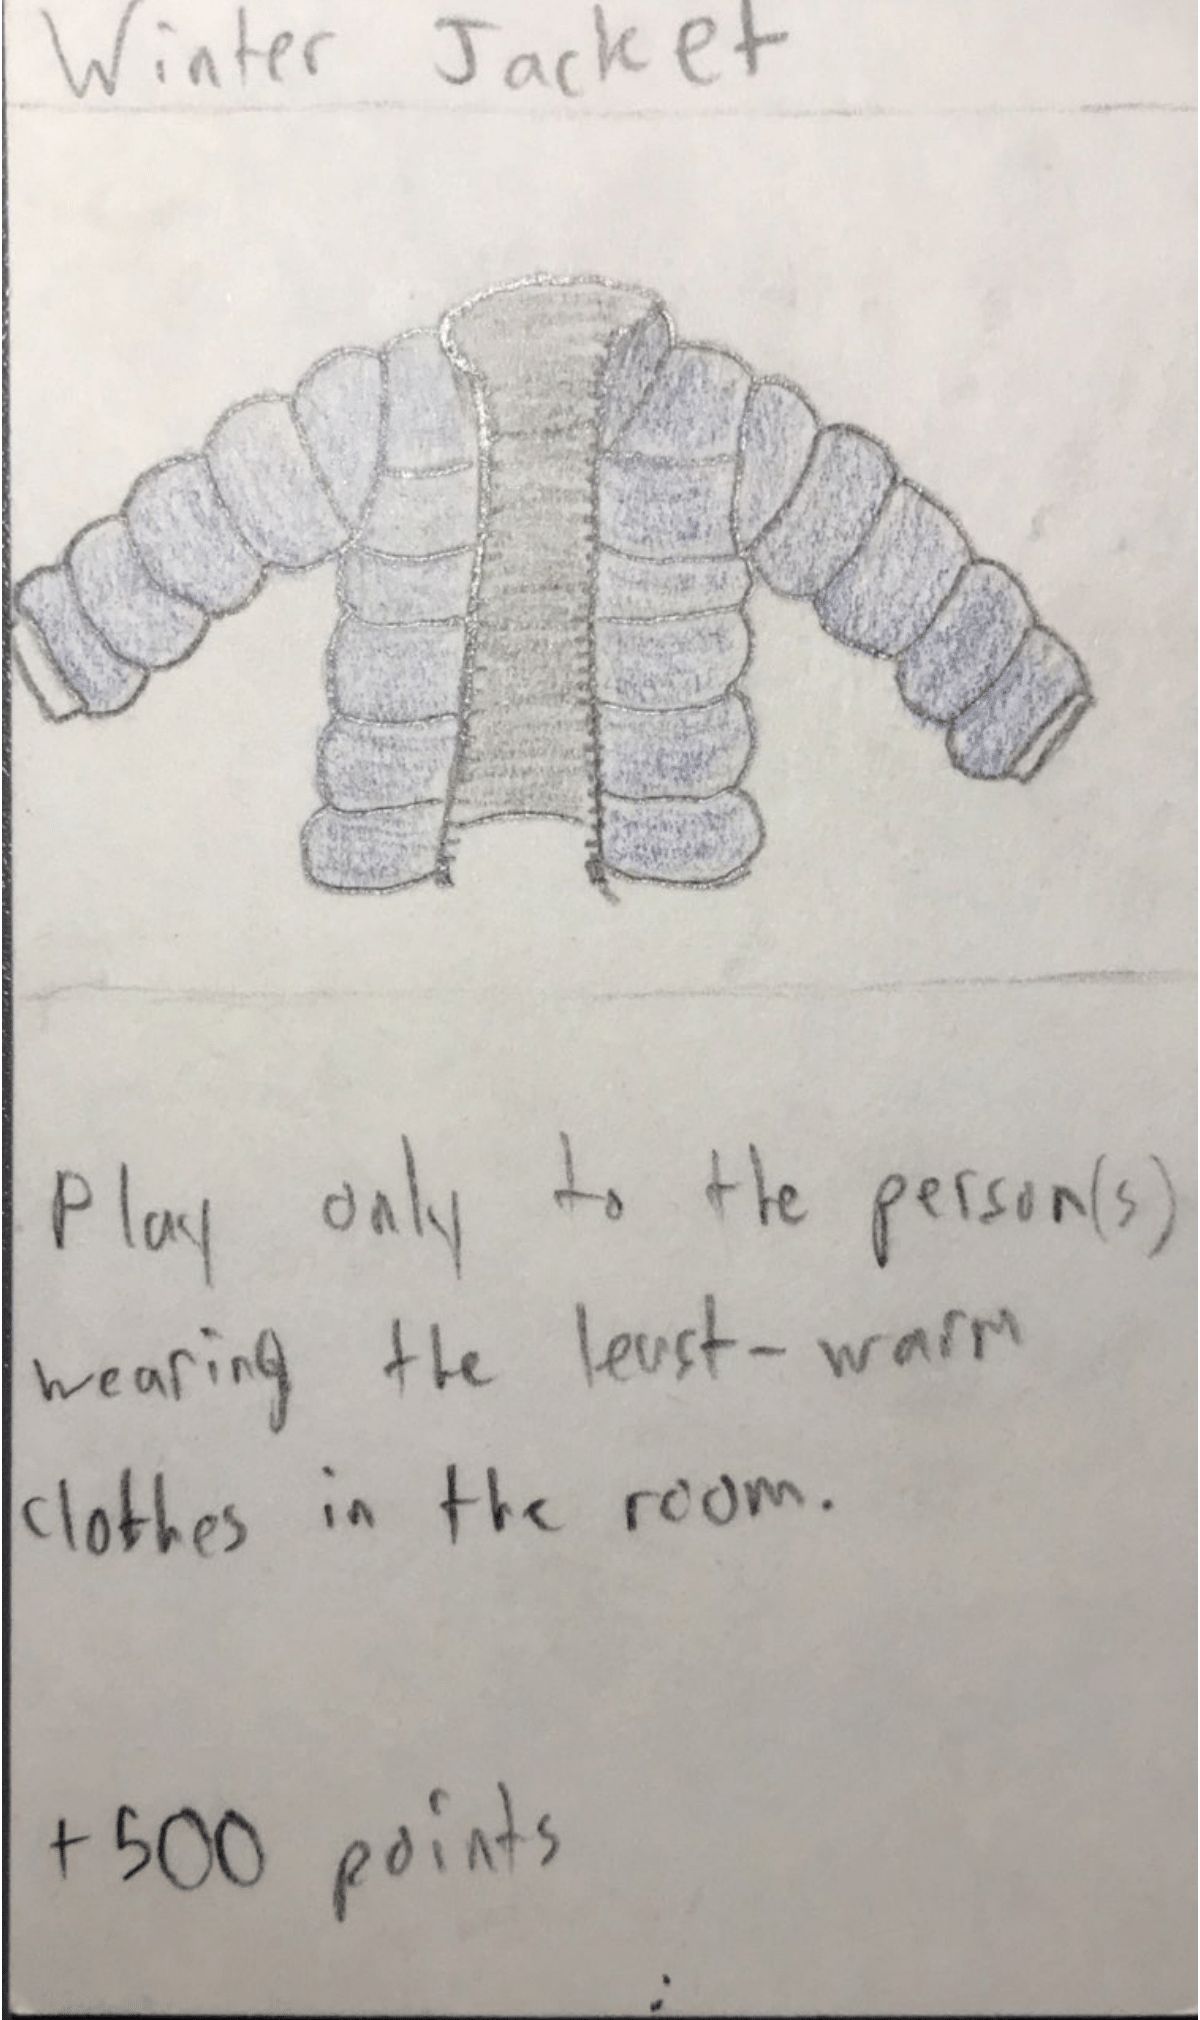 Winter Jacket
Play only to the person(s)
wearing the least-warm
clothes in the room.
+500 points